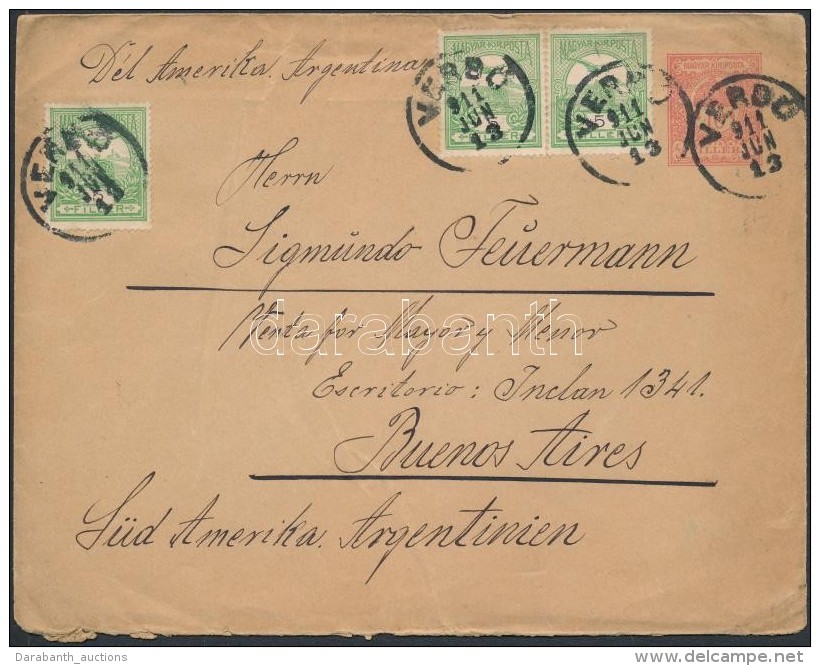 Dél Amerika. Argentina
MAGYAR KIR. POSTA
MAGYAR KIR. POSTA
MAGYAR KIR. POSTA
VERBÓ
911
JUN
13
VERBÓ
911
JUN
13
VERBÓ
911
JUN
13
VERBÓ
911
JUN
13
5
FILLÉR
FILLÉR
FILLÉR
Herrn
Sigmundo Feuermann
Venta por Mayor y Menor
Escritorio: Inclan 1341.
Buenos Aires
Süd Amerika. Argentinien
darabanth
Darabanth_auctions
delcampe.net